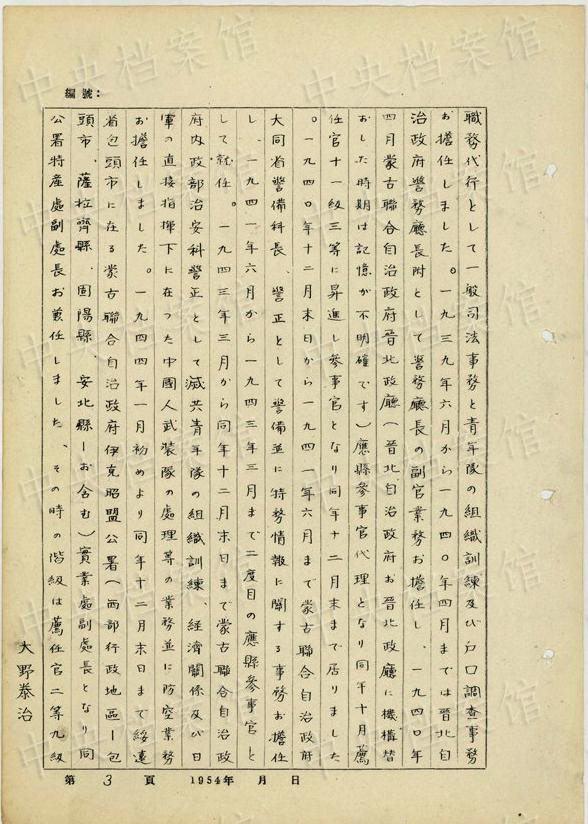 編號:
職務代行として一般司法事務と青年隊の組織訓練及び戸口調査事務
お担任しました。一九三九年六月から一九四〇年四月までは晋北自
治政府警務廳長附として警務廳長の副官業務お担任し、一九四〇年
四月蒙古聯合自治政府晋北政廳(晋北自治政府お晋北政廳に機構替
おした時期は記憶が不明確です)應縣參事官代理となり同年十月薦
任官十一級三等に昇進し參事官となり同年十二月末まで居りました
。一九四〇年十二月末日から一九四一年六月まで蒙古聯合自治政府
大同省警備科長、警正として警備並に特務情報に関する事務お擔任
し、一九四一年六月から一九四三年三月まで二度目の應縣參事官と
して就任。一九四三年三月から同年十二月末日まで蒙古聯合自治政
府内政部治安科警正として滅共青年隊の組織訓練、経濟關係及び日
軍の直接指揮下に在つた中國人武装隊の處理等の業務並に防空業務
お擔任しました。一九四四年一月初めより同年十二月末日まで綏遠
省包頭市に在る蒙古聯合自治政府伊克昭盟公署(西部行政地區ー包
頭市、薩拉齊縣、固陽縣、安北縣ーお含む)實業處副處長となり同
公署特産處副處長お兼任しました、その時の階級は薦任官二等九級
大野泰治
第 3 頁 1954年 月 日
中央档案馆